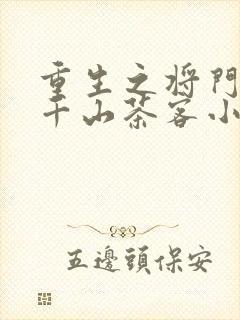 重生之将門
千山茶客小
五邊頭保安